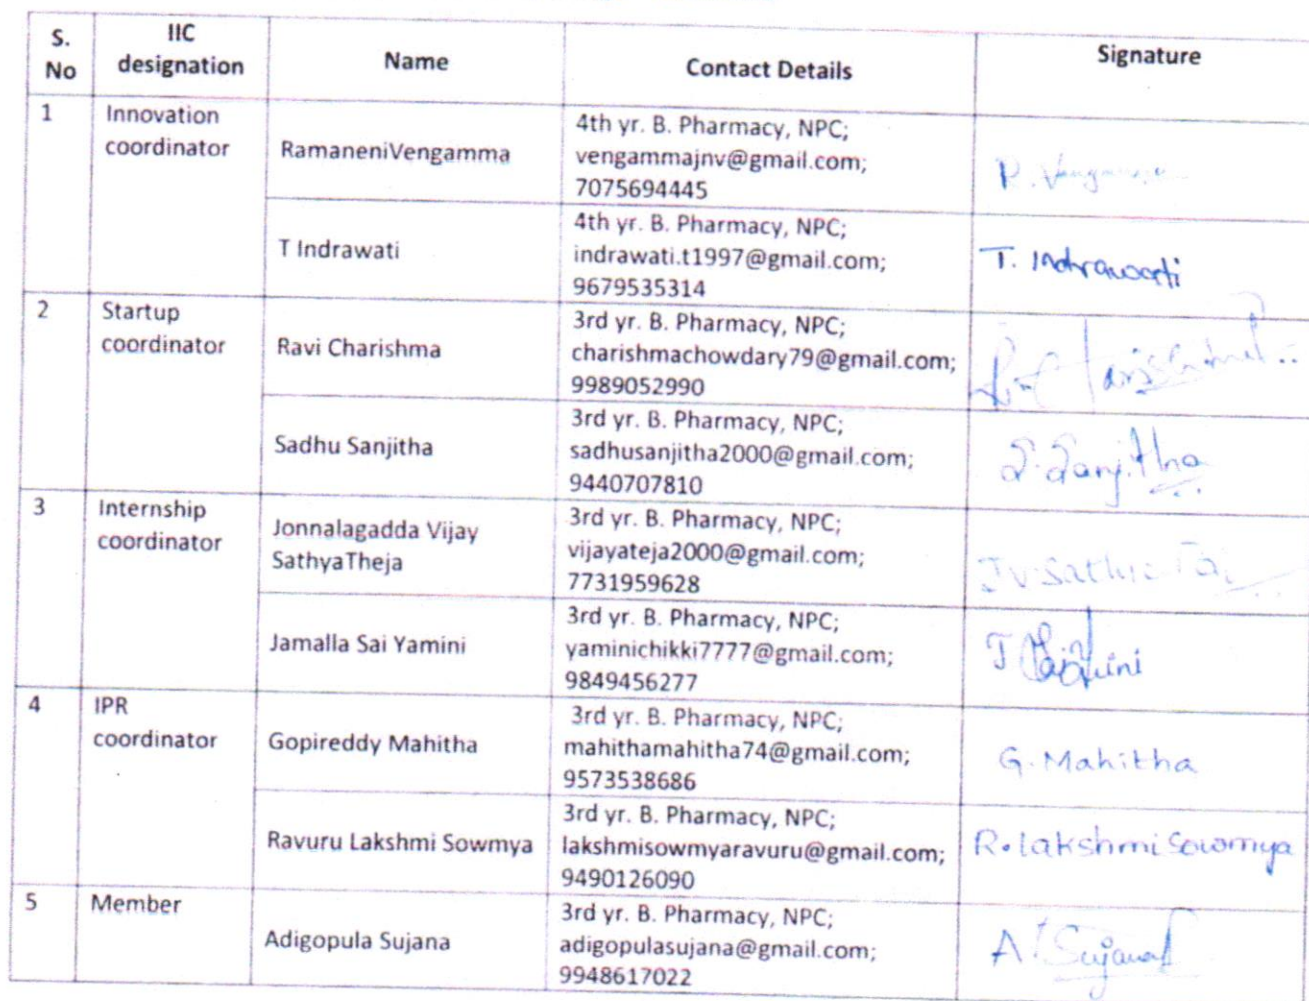 S. No IIC designation Name Contact Details Signature
1 Innovation coordinator RamaneniVengamma 4th yr. B. Pharmacy, NPC;
vengammajnv@gmail.com;
7075694445
R. Vengamma
T Indrawati 4th yr. B. Pharmacy, NPC;
indrawati.t1997@gmail.com;
9679535314
T. Indrawati
2 Startup coordinator Ravi Charishma 3rd yr. B. Pharmacy, NPC;
charishmachowdary79@gmail.com;
9989052990
Sadhu Sanjitha 3rd yr. B. Pharmacy, NPC;
sadhusanjitha2000@gmail.com;
9440707810
S. Sanjitha
3 Internship coordinator Jonnalagadda Vijay SathyaTheja 3rd yr. B. Pharmacy, NPC;
vijayateja2000@gmail.com;
7731959628
Jamalla Sai Yamini 3rd yr. B. Pharmacy, NPC;
yaminichikki7777@gmail.com;
9849456277
4 IPR coordinator Gopireddy Mahitha 3rd yr. B. Pharmacy, NPC;
mahithamahitha74@gmail.com;
9573538686
G. Mahitha
Ravuru Lakshmi Sowmya 3rd yr. B. Pharmacy, NPC;
lakshmisowmyaravuru@gmail.com;
9490126090
R. Lakshmi Sowmya
5 Member Adigopula Sujana 3rd yr. B. Pharmacy, NPC;
adigopulasujana@gmail.com;
9948617022
A. Sujana